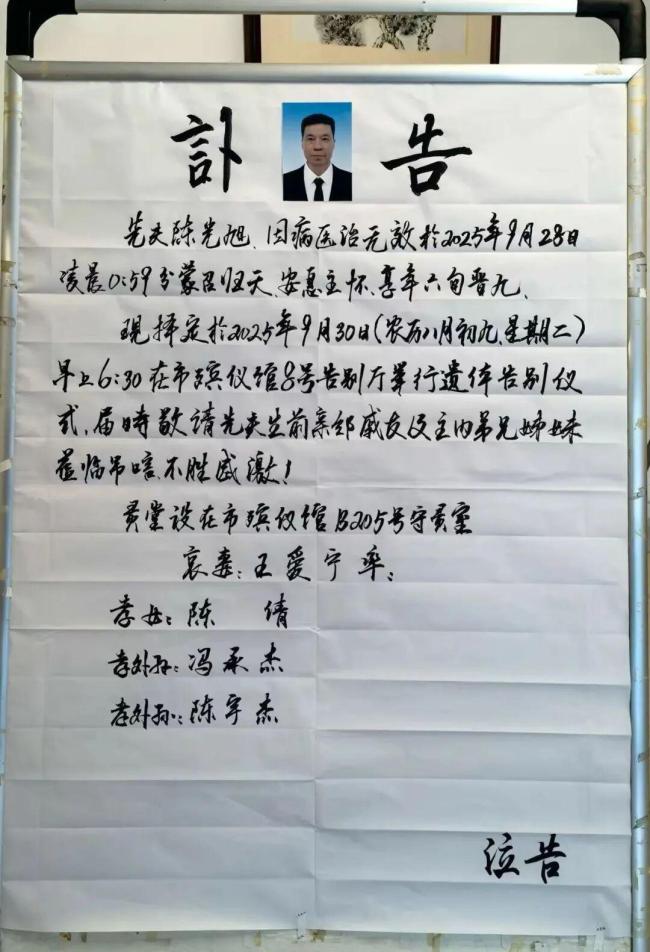 訃告
先夫陈光旭、因病医治无效於2025年9月28日
凌晨0:59分蒙召归天、安息主怀、享年六旬晋九、
现择定於2025年9月30日(农历八月初九、星期二)
早上6:30在市殡仪馆8号告别厅举行遗体告别仪
式、届时敬请先夫生前亲邻戚友及主内弟兄姊妹
莅临吊唁、不胜感激!
灵堂设在市殡仪馆B205号守灵室
哀妻:王爱宁率:
孝女:陈倩
孝外孙:冯承杰
孝外孙:陈宇杰
泣告